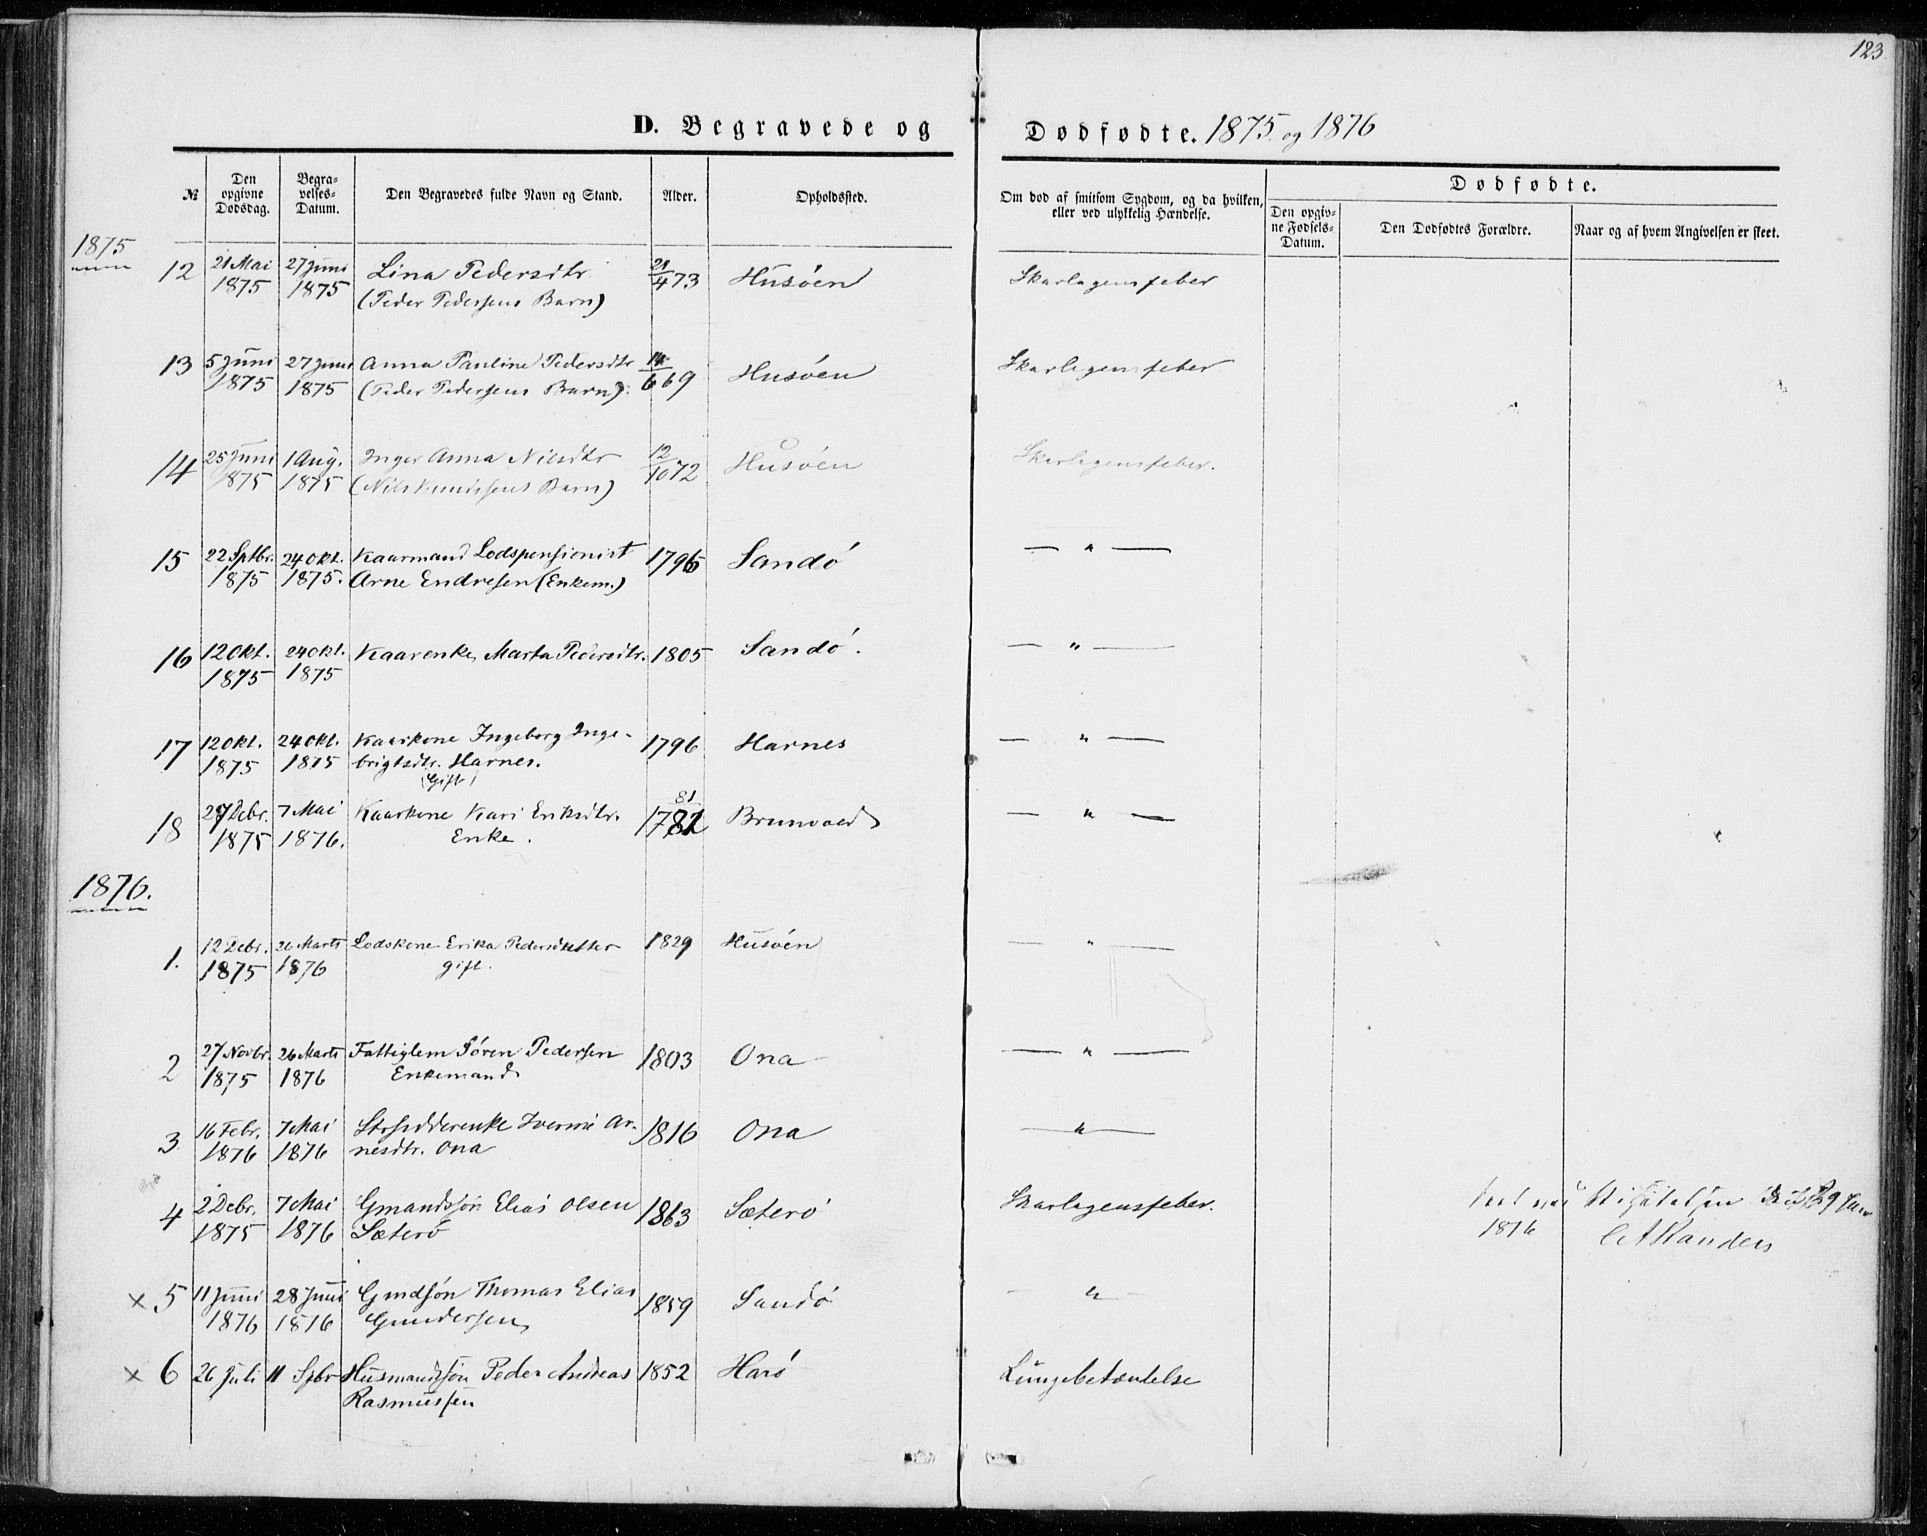 123.
D. Begravede og Dødfødte. 1875 og 1876
№
Den opgivne Dødsdag.
Begravelses-Datum.
Den Begravedes fulde Navn og Stand.
Alder.
Opholdssted.
Om død af smitsom Sygdom, og da hvilken, eller ved ulykkelig Hændelse.
Dødfødte.
Den opgivne Fødsels-Datum.
Den Dødfødtes Forældre.
Naar og af hvem Angivelsen er skeet.
1875
12 21 Mai 27 Juni Lina Pedersdtr 21/4 73 Husöen Skarlagensfeber
1875 1875 (Peder Pedersens Barn)
13 5 Juni 27 Juni Anna Pauline Pedersdtr 14/6 69 Husöen Skarlagensfeber
1875 1875 (Peder Pedersens Barn).
14 25 Juni 1 Aug. Inger Anna Nilsdtr 12/10 72 Husöen Skarlagensfeber.
1875 1875 (Nils Knudssens Barn)
15 22 Sptbr. 24 Okt. Kaarmand Lodspensionist 1796 Sandö — " —
1875 1875. Arne Endresen (Enkem.)
16 12 Okt. 24 Okt. Kaarenke Marta Pedersdtr. 1805 Sandö. — " —
1875 1875
17 12 Okt. 24 Okt. Kaarkone Ingeborg Inge- 1796 Harnes — " —
1875 1875 brigtsdtr. Harnes.
(Gift)
81
18 27 Debr. 7 Mai Kaarkone Kari Eriksdtr. 1782 Brunvold — " —
1875 1876. Enke.
1876.
1. 12 Debr. 26 Marts Lodskone Erika Pedersdatter 1829 Husöen — " —
1875 1876 gift.
2 27 Novbr. 26 Marts Fattiglem Sören Pedersen 1803 Ona — " —
1875 1876 Enkemand
3 16 Febr. 7 Mai Strsidderenke Iverine Ar- 1816 Ona — " —
1876 1876 nesdtr. Ona
4 2 Debr. 7 Mai Gmandssön Elias Olsen 1863 Sæterö Skarlagensfeber.
1875 1876 Sæterö
1876
× 5 11 Juni 28 Juni Gmdsön Thomas Elias 1859 Sandö — " —
1876 1876 Gundersen
× 6 26 Juli 11 Spbr Husmandssön Peder Andreas 1852 Harö Lungebetændelse
Rasmussen